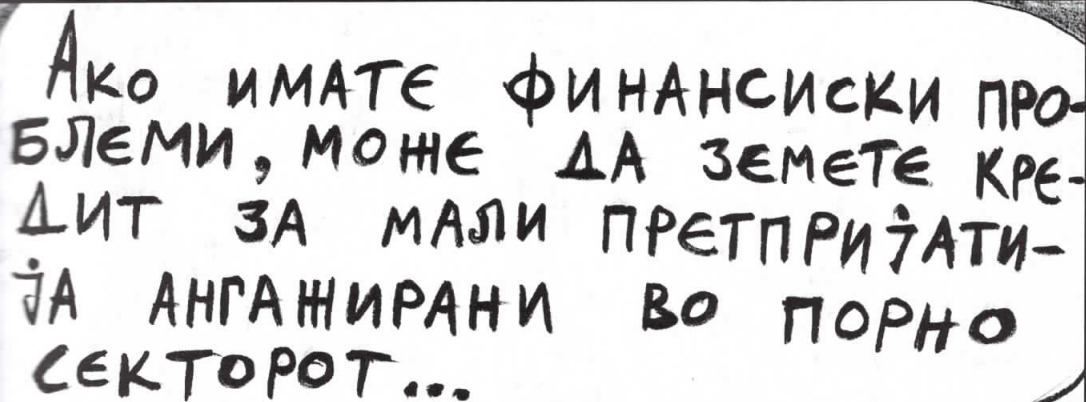 Ако имате финансиски про-
блеми, може да земете кре-
дит за мали претпријати-
ја ангажирани во порно
секторот...